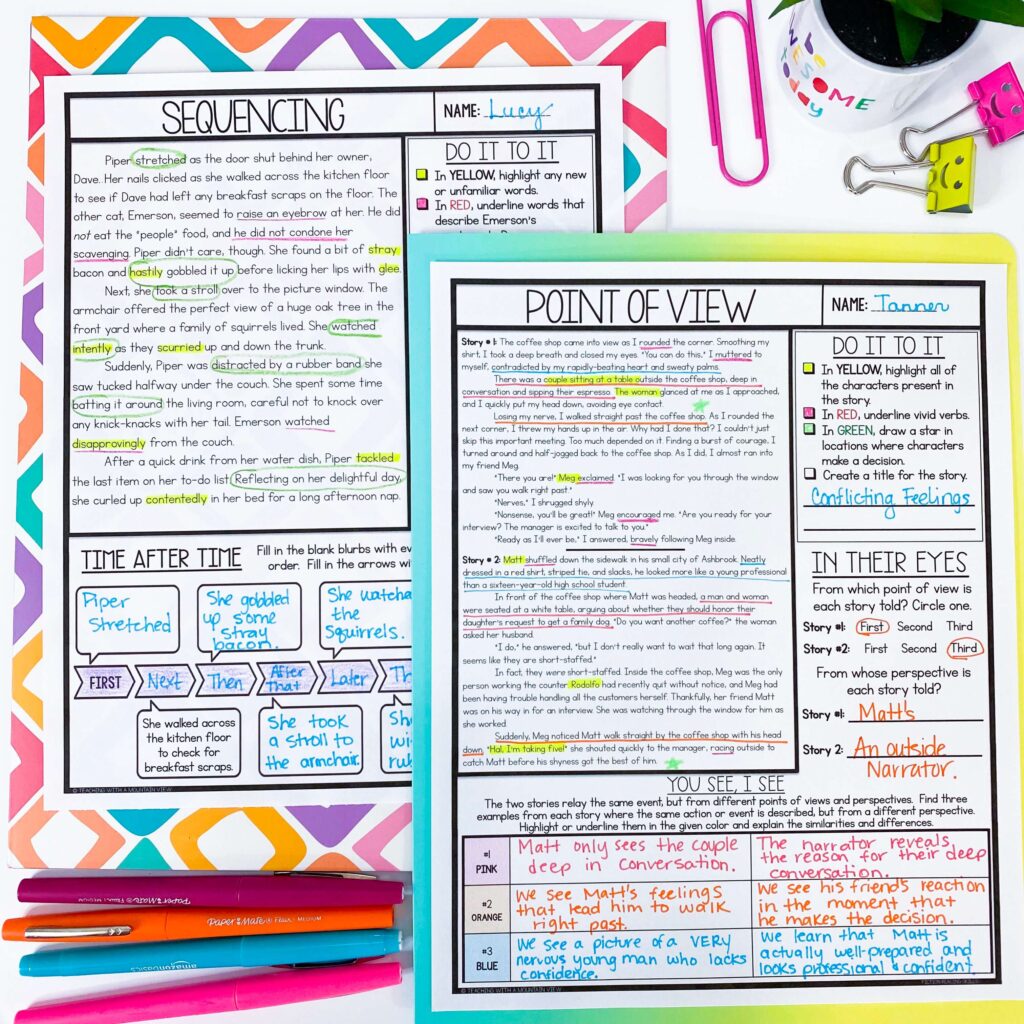 SEQUENCING
NAME: Lucy
Piper stretched as the door shut behind her owner,
Dave. Her nails clicked as she walked across the kitchen floor
to see if Dave had left any breakfast scraps on the floor. The
other cat, Emerson, seemed to raise an eyebrow at her. He did
not eat the "people" food, and he did not condone her
scavenging. Piper didn't care, though. She found a bit of stray
bacon and hastily gobbled it up before licking her lips with glee.
Next, she took a stroll over to the picture window. The
armchair offered the perfect view of a huge oak tree in the
front yard where a family of squirrels lived. She watched
intently as they scurried up and down the trunk.
Suddenly, Piper was distracted by a rubber band she
saw tucked halfway under the couch. She spent some time
batting it around the living room, careful not to knock over
any knick-knacks with her tail. Emerson watched
disapprovingly from the couch.
After a quick drink from her water dish, Piper tackled
the last item on her to-do list. Reflecting on her delightful day,
she curled up contentedly in her bed for a long afternoon nap.
DO IT TO IT
In YELLOW, highlight any new
or unfamiliar words.
In RED, underline words that
describe Emerson's
TIME AFTER TIME
Fill in the blank blurbs with
order. Fill in the arrows
Piper
Stretched
She gobbled
up some
stray
bacon.
She
the
squirrels.
FIRST
Next
Then
After
That
Later
She walked across
the kitchen floor
to check for
breakfast scraps.
She took
a stroll to
the armchair.
© TEACHING WITH A MOUNTAIN VIEW
POINT OF VIEW
NAME: Tanner
Story #1: The coffee shop came into view as I rounded the corner. Smoothing my
shirt, I took a deep breath and closed my eyes. "You can do this," I muttered to
myself, contradicted by my rapidly-beating heart and sweaty palms.
There was a couple sitting at a table outside the coffee shop, deep in
conversation and sipping their espresso. The woman glanced at me as I approached,
and I quickly put my head down, avoiding eye contact.
Losing my nerve, I walked straight past the coffee shop. As I rounded the
next corner, I threw my hands up in the air. Why had I done that? I couldn't just
skip this important meeting. Too much depended on it. Finding a burst of courage, I
turned around and half-jogged back to the coffee shop. As I did, I almost ran into
my friend Meg.
"There you are!" Meg exclaimed. "I was looking for you through the window
and saw you walk right past."
"Nerves," I shrugged shyly.
"Nonsense, you'll be great!" Meg encouraged me. "Are you ready for your
interview? The manager is excited to talk to you."
"Ready as I'll ever be," I answered, bravely following Meg inside.
Story #2: Matt shuffled down the sidewalk in his small city of Ashbrook. Neatly
dressed in a red shirt, striped tie, and slacks, he looked more like a young professional
than a sixteen-year-old high school student.
In front of the coffee shop where Matt was headed, a man and woman
were seated at a white table, arguing about whether they should honor their
daughter's request to get a family dog. "Do you want another coffee?" the woman
asked her husband.
"I do," he answered, "but I don't really want to wait that long again. It
seems like they are short-staffed."
In fact, they were short-staffed. Inside the coffee shop, Meg was the only
person working the counter. Rodolfo had recently quit without notice, and Meg had
been having trouble handling all the customers herself. Thankfully, her friend Matt
was on his way in for an interview. She was watching through the window for him as
she worked.
Suddenly, Meg noticed Matt walk straight by the coffee shop with his head
down. "Hal, I'm taking five!" she shouted quickly to the manager, racing outside to
catch Matt before his shyness got the best of him.
DO IT TO IT
In YELLOW, highlight all of
the characters present in
the story.
In RED, underline vivid verbs.
In GREEN, draw a star in
locations where characters
make a decision.
Create a title for the story.
Conflicting Feelings
IN THEIR EYES
From which point of view is
each story told? Circle one.
Story #1: First Second Third
Story #2: First Second Third
From whose perspective is
each story told?
Story #1: Matt's
Story 2: An outside
Narrator.
YOU SEE, I SEE
The two stories relay the same event, but from different points of views and perspectives. Find three
examples from each story where the same action or event is described, but from a different perspective.
Highlight or underline them in the given color and explain the similarities and differences.
#1
PINK
Matt only sees the couple
deep in conversation.
The narrator reveals
the reason for their deep
conversation.
#2
ORANGE
We see Matt's feelings
that lead him to walk
right past.
We see his friend's reaction
in the moment that
he makes the decision.
#3
BLUE
We see a picture of a VERY
nervous young man who lacks
confidence.
We learn that Matt is
actually well-prepared and
looks professional & confident.
© TEACHING WITH A MOUNTAIN VIEW
FICTION READING SKILLS
Paper Mate Flair MEDIUM
Paper Mate Flair MEDIUM
amazonbasics
AWESOME
today